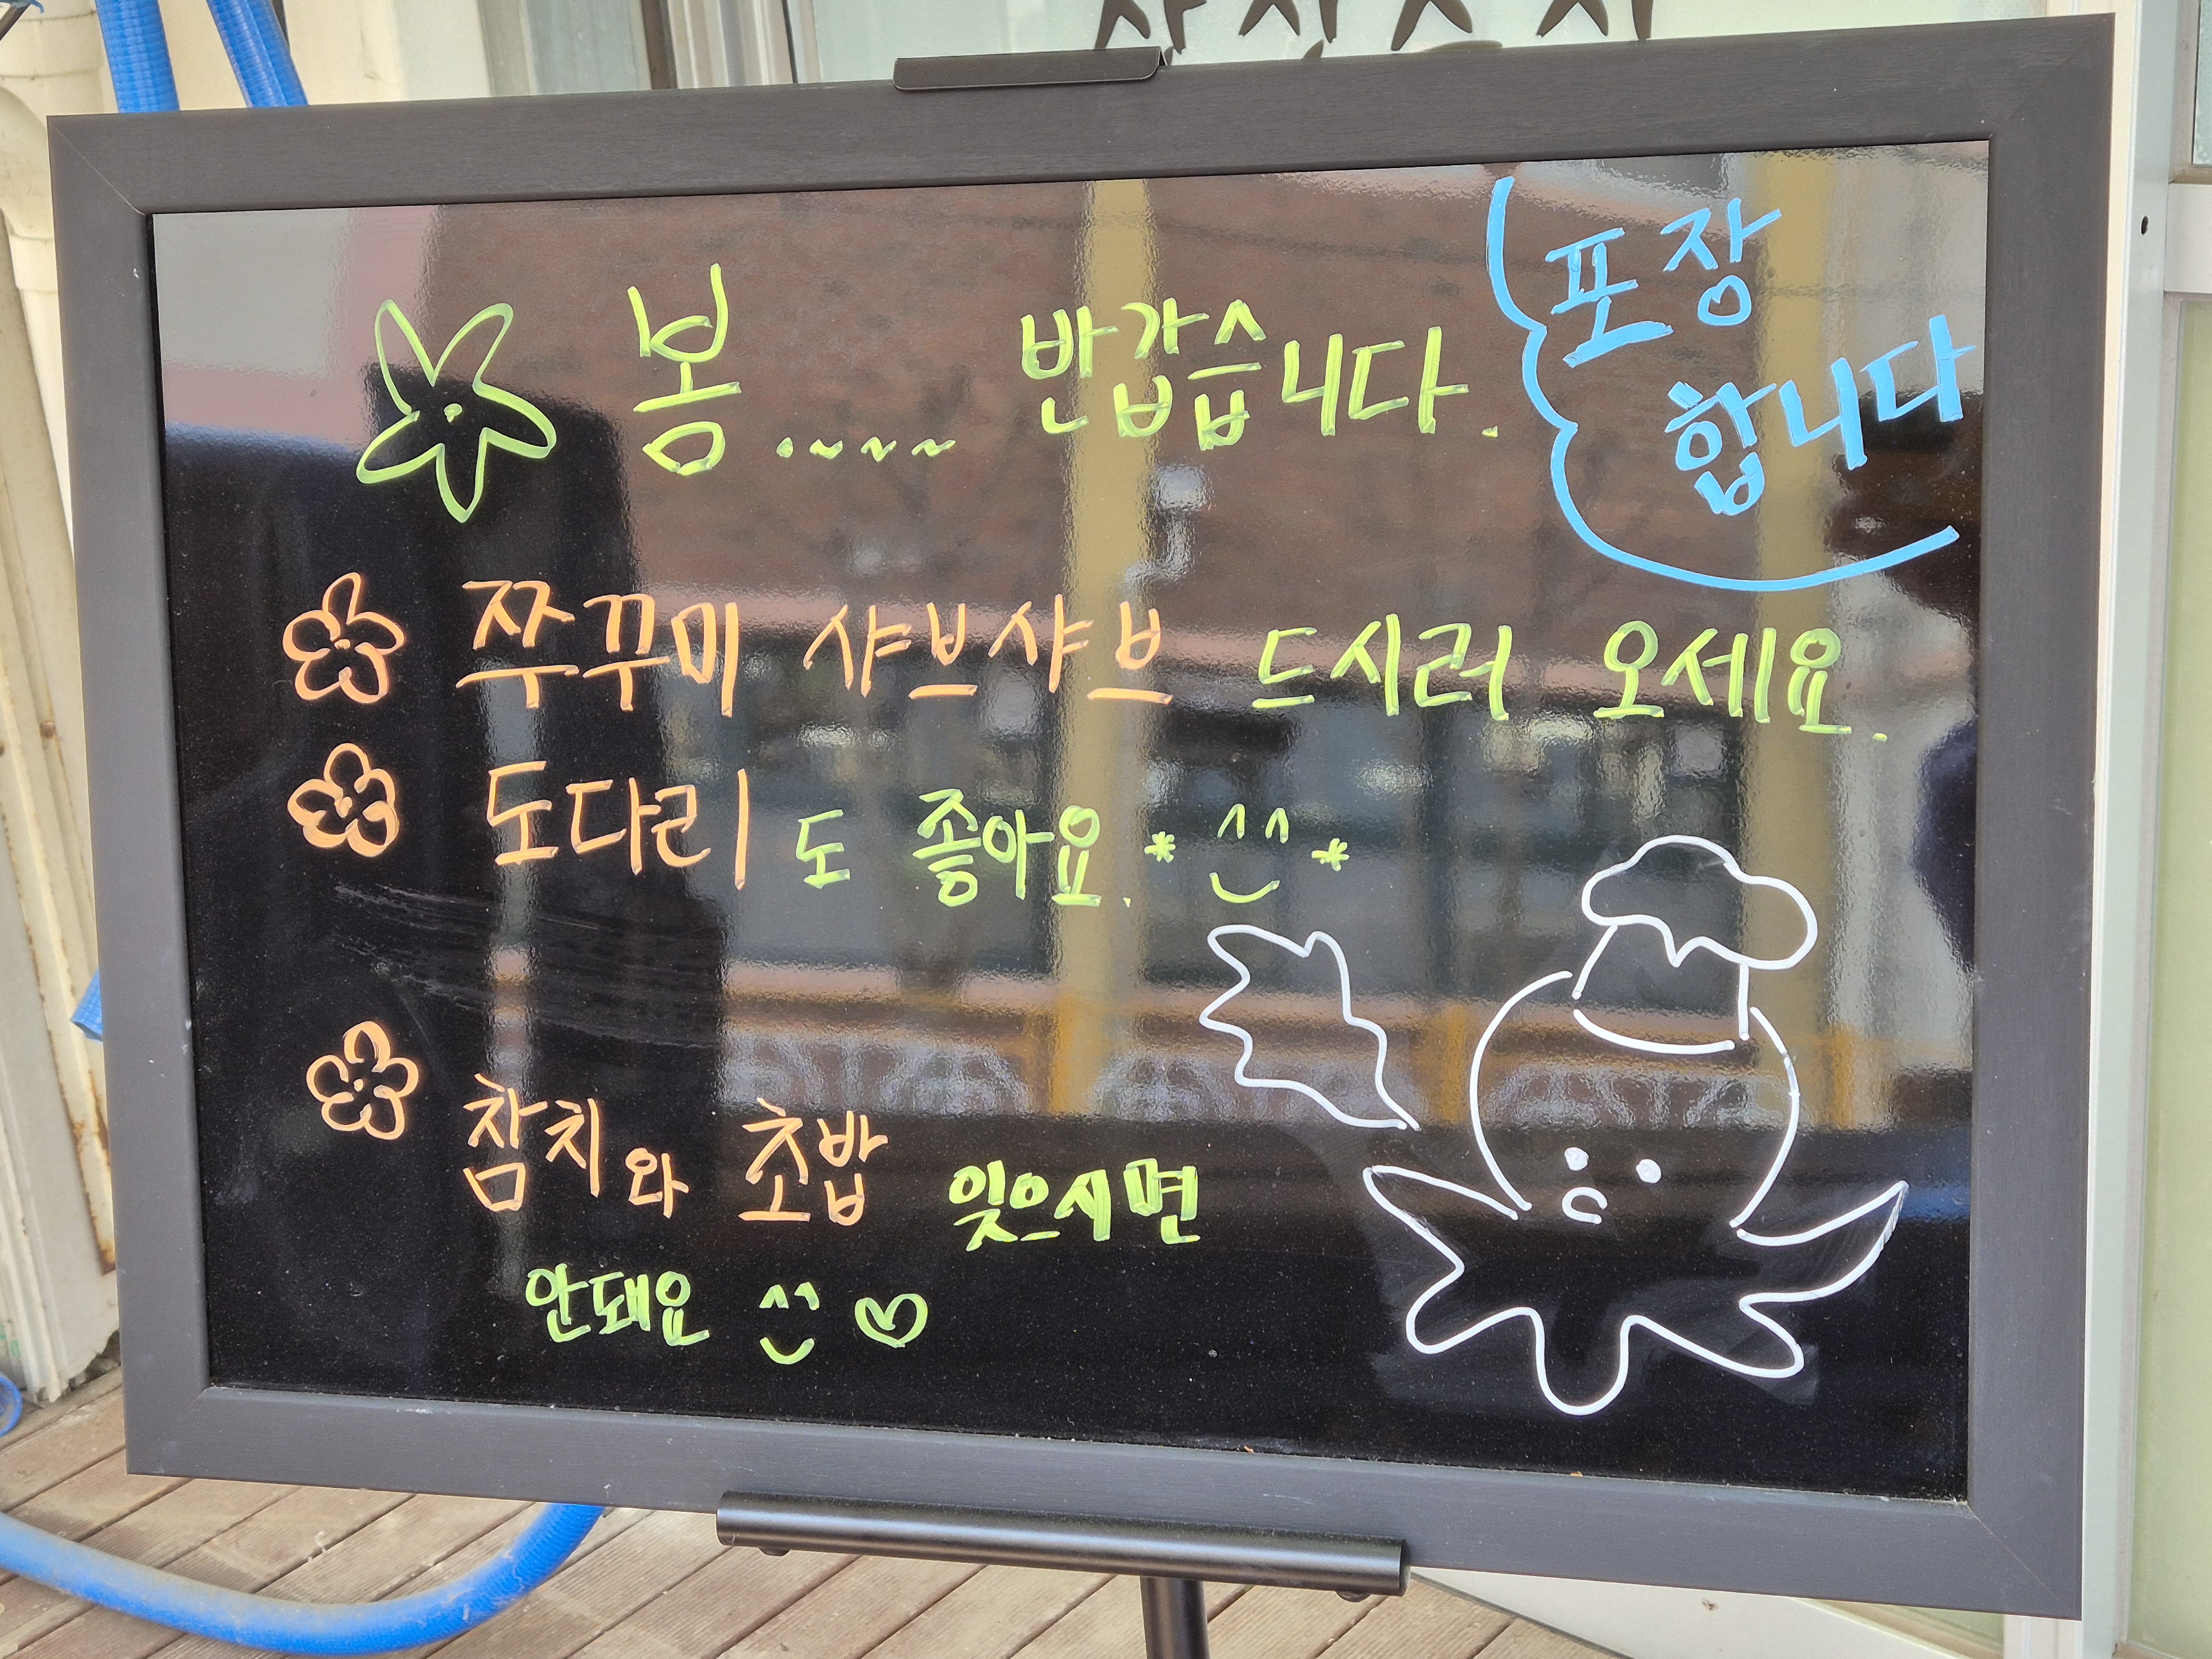 봄.~~~ 반갑습니다.
포장
합니다
쭈꾸미 샤브샤브 드시러 오세요.
도다리도 좋아요. * ^^ *
참치와 초밥 잊으시면
안돼요 ^^ ♡